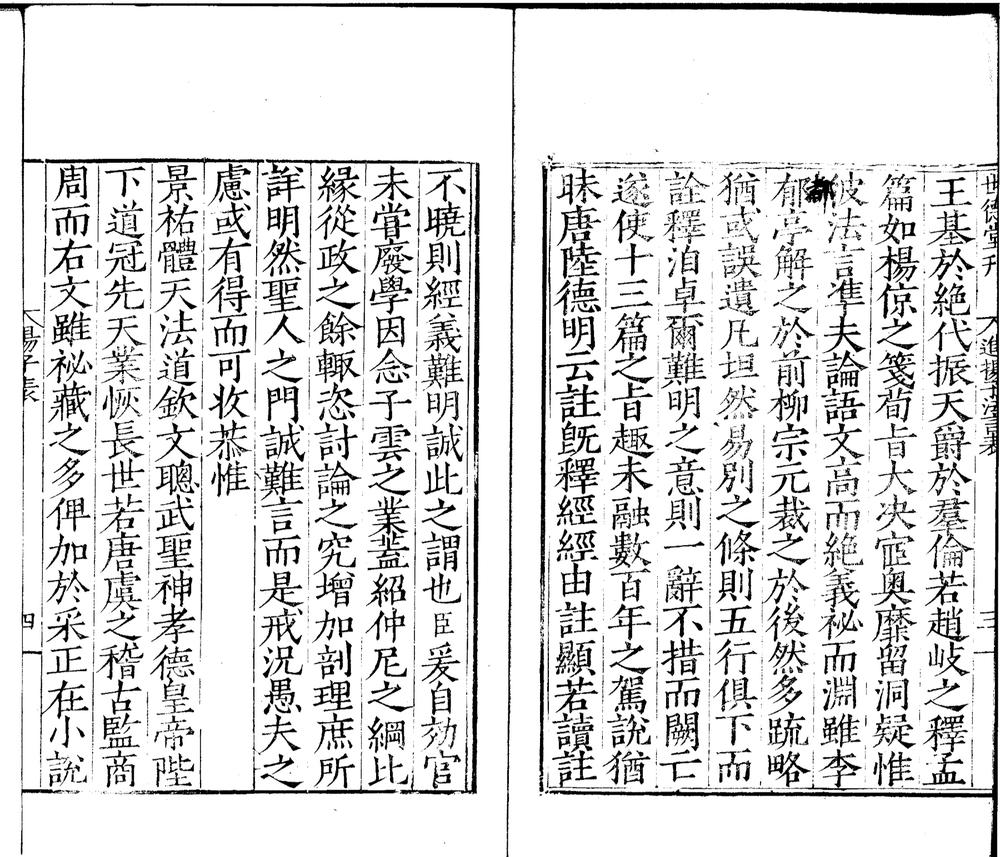 世德堂刊
進揚子法言表
三
王基於絶代振天爵於羣倫若趙岐之釋孟
篇如楊倞之箋荀旨大决窔奥靡留洞疑惟
彼法言準夫論語文高而絶義祕而淵雖李
郁亭解之於前柳宗元裁之於後然多疏略
猶或誤遺凡坦然易別之條則五行俱下而
詮釋洎卓爾難明之意則一辭不措而闕亡
遂使十三篇之旨趣未融數百年之駕說猶
昧唐陸德明云註旣釋經經由註顯若讀註
不曉則經義難明誠此之謂也臣爰自効官
未嘗廢學因念子雲之業葢紹仲尼之綱比
緣從政之餘輙恣討論之究增加剖理庶所
詳明然聖人之門誠難言而是戒況愚夫之
慮或有得而可收恭惟
景祐體天法道欽文聰武聖神孝德皇帝陛
下道冠先天業恢長世若唐虞之稽古監商
周而右文雖祕藏之多俾加於采正在小說
揚子表
四